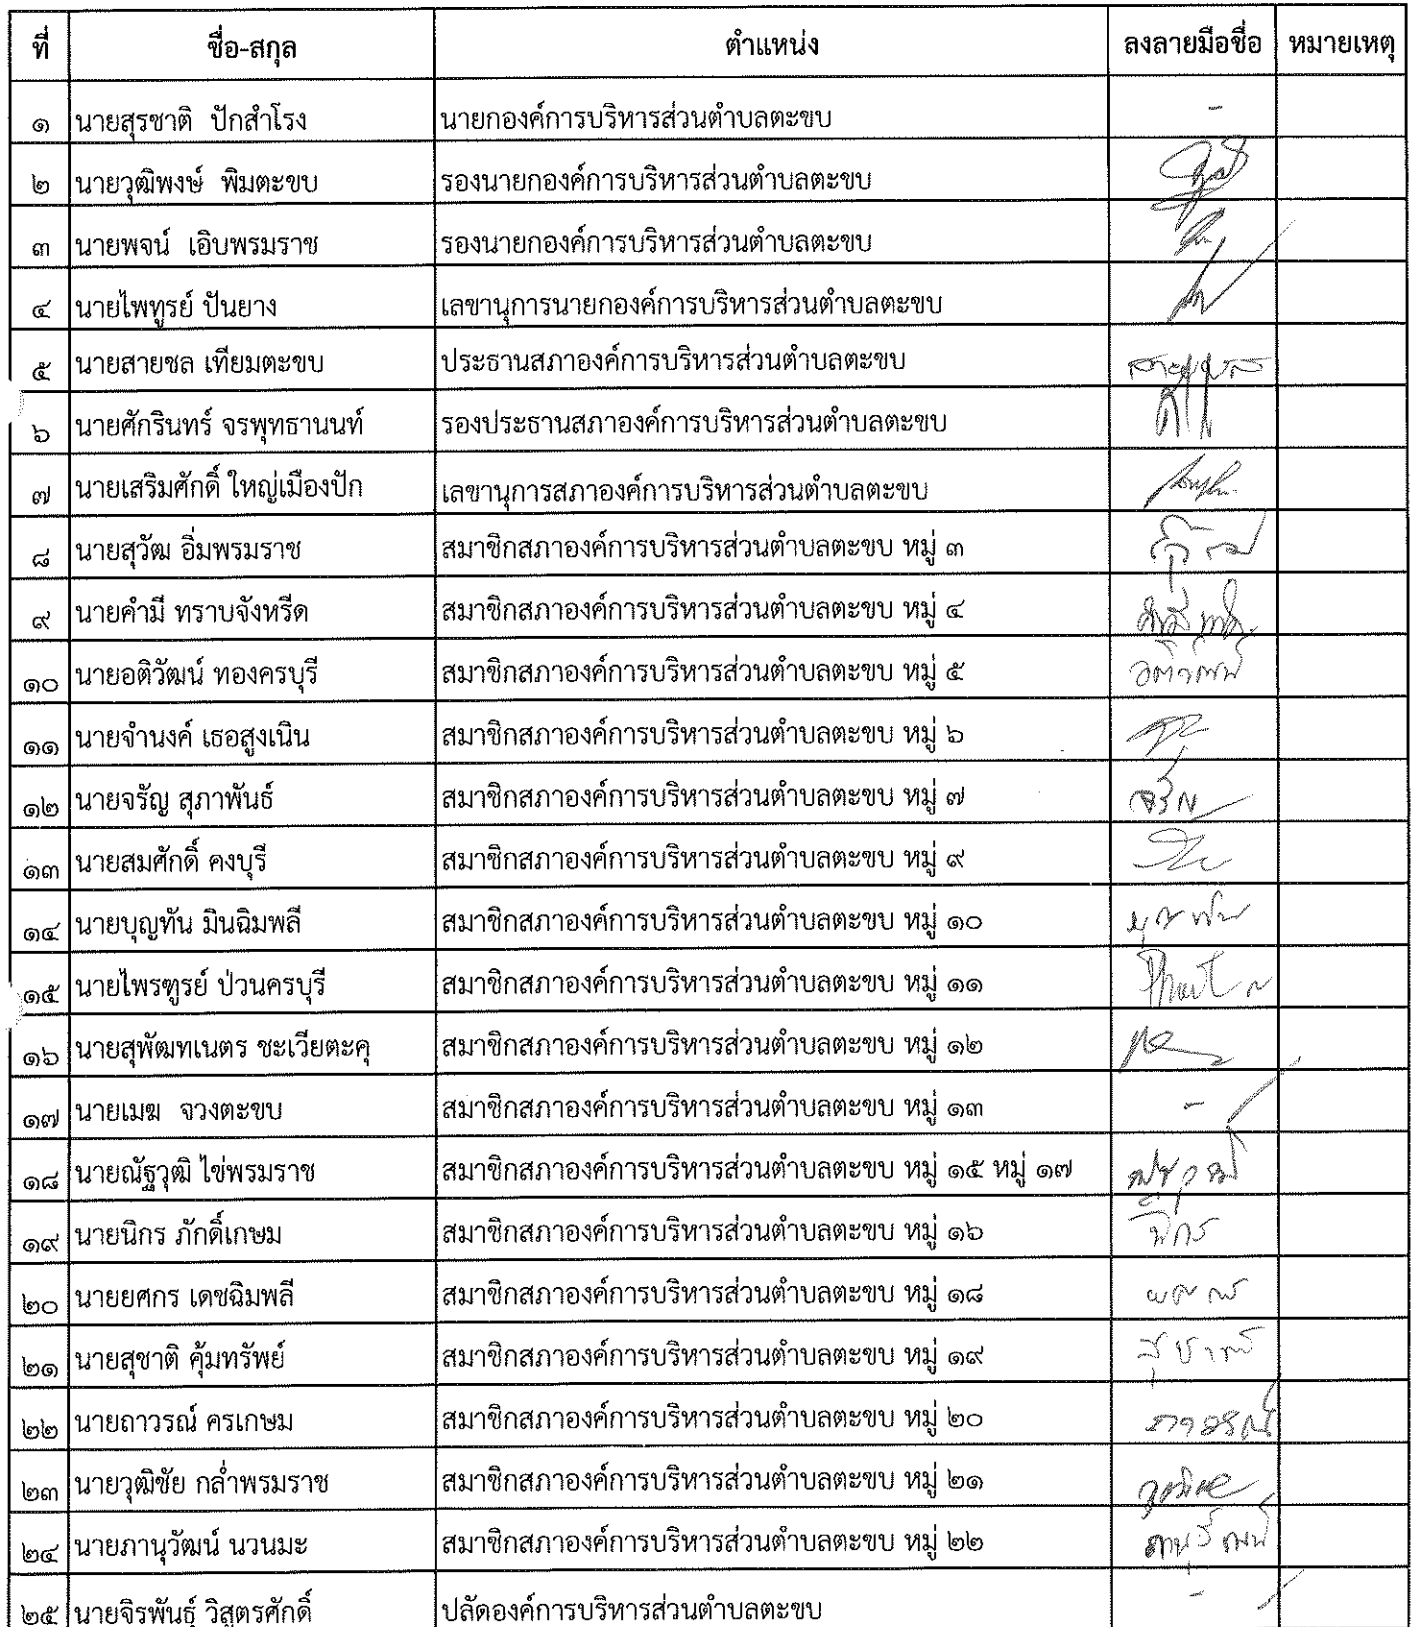 ที่ ชื่อ-สกุล ตำแหน่ง ลงลายมือชื่อ หมายเหตุ
๑ นายสุรชาติ ปักสำโรง นายกองค์การบริหารส่วนตำบลตะขบ -
๒ นายวุฒิพงษ์ พิมตะขบ รองนายกองค์การบริหารส่วนตำบลตะขบ
๓ นายพจน์ เอิบพรมราช รองนายกองค์การบริหารส่วนตำบลตะขบ
๔ นายไพทูรย์ ปันยาง เลขานุการนายกองค์การบริหารส่วนตำบลตะขบ
๕ นายสายชล เทียมตะขบ ประธานสภาองค์การบริหารส่วนตำบลตะขบ
๖ นายศักรินทร์ จรพุทธานนท์ รองประธานสภาองค์การบริหารส่วนตำบลตะขบ
๗ นายเสริมศักดิ์ ใหญ่เมืองปัก เลขานุการสภาองค์การบริหารส่วนตำบลตะขบ
๘ นายสุวัฒ อิ่มพรมราช สมาชิกสภาองค์การบริหารส่วนตำบลตะขบ หมู่ ๓
๙ นายคำมี ทราบจังหรีด สมาชิกสภาองค์การบริหารส่วนตำบลตะขบ หมู่ ๔
๑๐ นายอติวัฒน์ ทองครบุรี สมาชิกสภาองค์การบริหารส่วนตำบลตะขบ หมู่ ๕ อติวัฒน์
๑๑ นายจำนงค์ เธอสูงเนิน สมาชิกสภาองค์การบริหารส่วนตำบลตะขบ หมู่ ๖
๑๒ นายจรัญ สุภาพันธ์ สมาชิกสภาองค์การบริหารส่วนตำบลตะขบ หมู่ ๗ จรัญ
๑๓ นายสมศักดิ์ คงบุรี สมาชิกสภาองค์การบริหารส่วนตำบลตะขบ หมู่ ๙
๑๔ นายบุญทัน มินฉิมพลี สมาชิกสภาองค์การบริหารส่วนตำบลตะขบ หมู่ ๑๐ บุญทัน
๑๕ นายไพรฑูรย์ ป่วนครบุรี สมาชิกสภาองค์การบริหารส่วนตำบลตะขบ หมู่ ๑๑
๑๖ นายสุพัฒทเนตร ชะเวียตะคุ สมาชิกสภาองค์การบริหารส่วนตำบลตะขบ หมู่ ๑๒
๑๗ นายเมฆ จวงตะขบ สมาชิกสภาองค์การบริหารส่วนตำบลตะขบ หมู่ ๑๓ -
๑๘ นายณัฐวุฒิ ไข่พรมราช สมาชิกสภาองค์การบริหารส่วนตำบลตะขบ หมู่ ๑๕ หมู่ ๑๗
๑๙ นายนิกร ภักดิ์เกษม สมาชิกสภาองค์การบริหารส่วนตำบลตะขบ หมู่ ๑๖ นิกร
๒๐ นายยศกร เดชฉิมพลี สมาชิกสภาองค์การบริหารส่วนตำบลตะขบ หมู่ ๑๘ ยศกร
๒๑ นายสุชาติ คุ้มทรัพย์ สมาชิกสภาองค์การบริหารส่วนตำบลตะขบ หมู่ ๑๙ สุชาติ
๒๒ นายถาวรณ์ ครเกษม สมาชิกสภาองค์การบริหารส่วนตำบลตะขบ หมู่ ๒๐ ถาวรณ์
๒๓ นายวุฒิชัย กล่ำพรมราช สมาชิกสภาองค์การบริหารส่วนตำบลตะขบ หมู่ ๒๑
๒๔ นายภานุวัฒน์ นวนมะ สมาชิกสภาองค์การบริหารส่วนตำบลตะขบ หมู่ ๒๒ ภานุวัฒน์
๒๕ นายจิรพันธุ์ วิสูตรศักดิ์ ปลัดองค์การบริหารส่วนตำบลตะขบ -